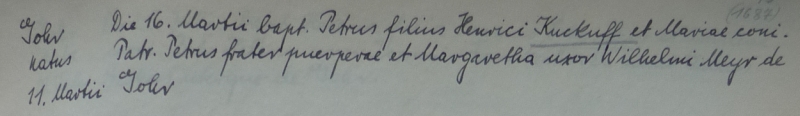 (1687)
Johr Die 16. Martii bapt. Petrus filius Henrici Kuckuff et Mariae coni.
natus Patr. Petrus frater puerperae et Margaretha uxor Wilhelmi Meyr de
11. Martii Johr